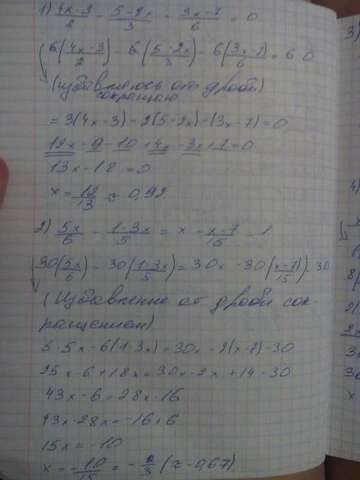 1) (4x-3)/2 - (5-2x)/3 - (3x-7)/6 = 0
6((4x-3)/2) - 6((5-2x)/3) - 6((3x-7)/6) = 6·0
(избавляюсь от дроби)
сокращаю
= 3(4x-3)-2(5-2x)-(3x-7)=0
12x-9-10+4x-3x+7=0
13x-12=0
x = 12/13 ≈ 0,92
2) 5x/6 - (1-3x)/5 = x - (x-7)/15 - 1
30(5x/6) - 30((1-3x)/5) = 30x - 30((x-7)/15) - 30
(Избавление от дроби сок-
ращением)
5·5x-6(1-3x)=30x-2(x-7)-30
25x-6+18x=30x-2x+14-30
43x-6=28x-16
43x-28x=-16+6
15x=-10
x = -10/15 = -2/3 (≈-0,67)
3)
4)